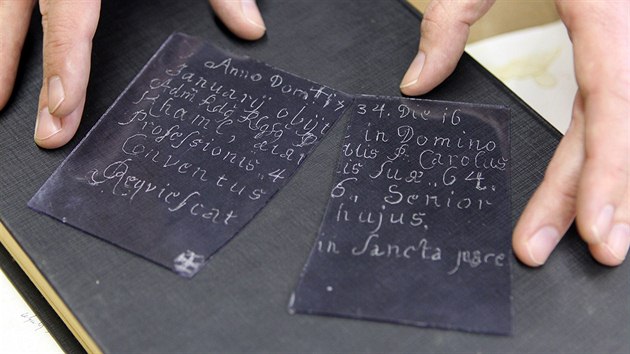 Anno Domi
Januarij obijt
Adm Rds
professionis 4
Conventus
Requiescat
34. Die 16
in Domino
blis P. Carolus
is suæ 64.
6. Senior
hujus.
in sancta pace